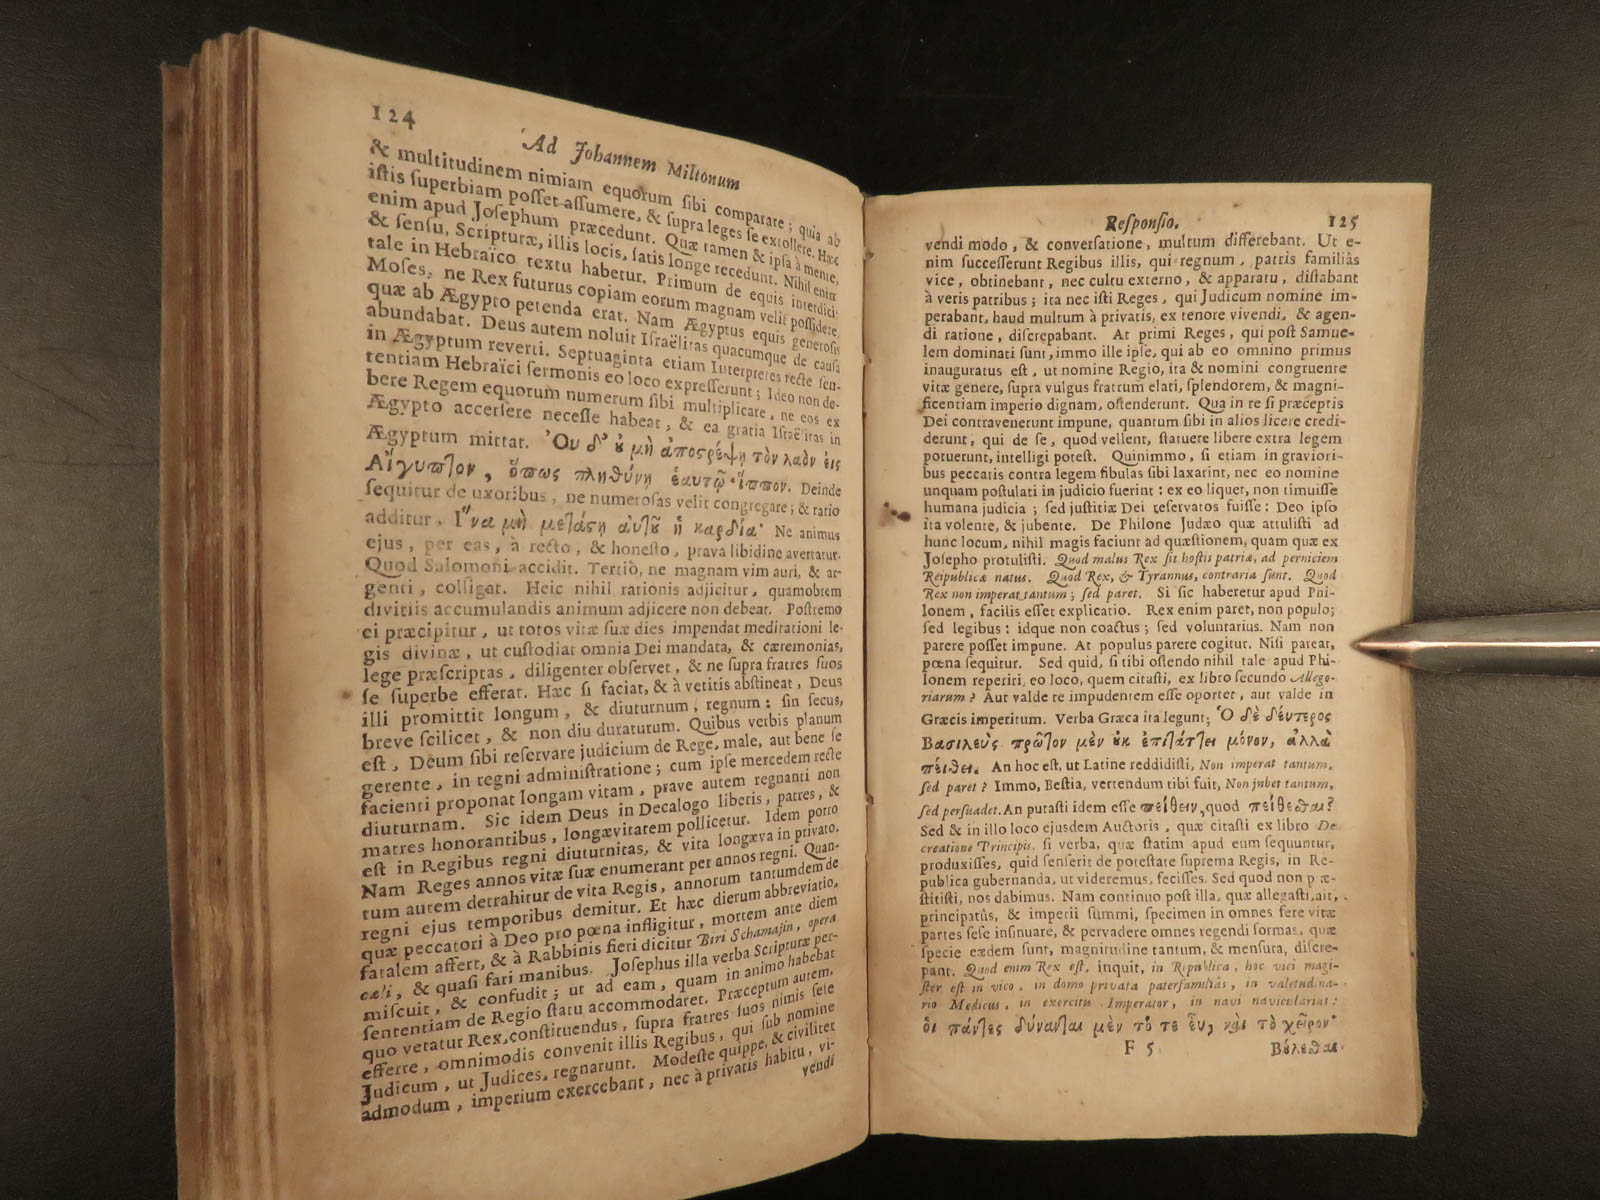 124
Ad Johannem Miltonum
& multitudinem nimiam equorum ſibi comparare; quia ab
iſtis ſuperbiam poſſet aſſumere, & ſupra leges ſe extollere. Hæc
enim apud Joſephum præcedunt. Quæ tamen & ipſa à mente,
& ſenſu, Scripturæ, illis locis, ſatis longe recedunt. Nihil enim
tale in Hebraïco textu habetur. Primum de equis interdici-
Moſes, ne Rex futurus copiam eorum magnam velit poſſidere,
quæ ab Ægypto petenda erat. Nam Ægyptus equis generoſis
abundabat. Deus autem noluit Iſraëlitas quacumque de cauſa
in Ægyptum reverti. Septuaginta etiam Interpretes recte ſen-
tentiam Hebraïci ſermonis eo loco expreſſerunt; Ideo non de-
bere Regem equorum numerum ſibi multiplicare, ne eos ex
Ægypto accerſere neceſſe habeat, & ea gratia Iſraëlitas in
Ægyptum mittat. Ὀυ δ' ȣ μὴ ἀποςρέψῃ τὸν λαὸν ἐις
Αἴγυπτον, ὅπως πληθύνῃ ἑαυτῷ ἵππον. Deinde
ſequitur de uxoribus, ne numeroſas velit congregare; & ratio
additur, Ἵνα μὴ μεταςῇ αὐτȣ͂ ἡ καρδία· Ne animus
ejus, per eas, à recto, & honeſto, prava libidine avertatur.
Quod Salomoni accidit. Tertiò, ne magnam vim auri, & ar-
genti, colligat. Heic nihil rationis adjicitur, quamobrem
divitiis accumulandis animum adjicere non debeat. Poſtremo
ei præcipitur, ut totos vitæ ſuæ dies impendat meditationi le-
gis divinæ, ut cuſtodiat omnia Dei mandata, & cæremonias,
lege præſcriptas, diligenter obſervet, & ne ſupra fratres ſuos
ſe ſuperbe efferat. Hæc ſi faciat, & à vetitis abſtineat, Deus
illi promittit longum, & diuturnum, regnum: ſin ſecus,
breve ſcilicet, & non diu duraturum. Quibus verbis planum
eſt, Deum ſibi reſervare judicium de Rege, male, aut bene ſe
gerente, in regni adminiſtratione; cum ipſe mercedem recte
facienti proponat longam vitam, prave autem regnanti non
diuturnam. Sic idem Deus in Decalogo liberis, patres, &
matres honorantibus, longævitatem pollicetur. Idem porro
eſt in Regibus regni diuturnitas, & vita longæva in privato.
Nam Reges annos vitæ ſuæ enumerant per annos regni. Quan-
tum autem detrahitur de vita Regis, annorum tantumdem de
regni ejus temporibus demitur. Et hæc dierum abbreviatio,
quæ peccatori à Deo pro pœna infligitur, mortem ante diem
fatalem affert, & à Rabbinis fieri dicitur Biri Schamajin, opera
cœli, & quaſi fari manibus. Joſephus illa verba Scripturæ per-
miſcuit, & confudit; ut ad eam, quam in animo habebat
ſententiam de Regio ſtatu accommodaret. Præceptum autem,
quo vetatur Rex, conſtituendus, ſupra fratres ſuos nimis ſeſe
efferre, omnimodis convenit illis Regibus, qui ſub nomine
Judicum, ut Judices, regnarunt. Modeſte quippe, & civiliter
admodum, imperium exercebant, nec à privatis habitu, vi-
vendi
Reſponſio. 125
vendi modo, & converſatione, multum differebant. Ut e-
nim ſucceſſerunt Regibus illis, qui regnum, patris familiâs
vice, obtinebant, nec cultu externo, & apparatu, diſtabant
à veris patribus; ita nec iſti Reges, qui Judicum nomine im-
perabant, haud multum à privatis, ex tenore vivendi, & agen-
di ratione, diſcrepabant. At primi Reges, qui poſt Samue-
lem dominati ſunt, immo ille ipſe, qui ab eo omnino primus
inauguratus eſt, ut nomine Regio, ita & nomini congruente
vitæ genere, ſupra vulgus fratrum elati, ſplendorem, & magni-
ficentiam imperio dignam, oſtenderunt. Qua in re ſi præceptis
Dei contravenerunt impune, quantum ſibi in alios licere credi-
derunt, qui de ſe, quod vellent, ſtatuere libere extra legem
potuerunt, intelligi poteſt. Quinimmo, ſi etiam in graviori-
bus peccatis contra legem fibulas ſibi laxarint, nec eo nomine
unquam poſtulati in judicio fuerint: ex eo liquet, non timuiſſe
humana judicia; ſed juſtitiæ Dei reſervatos fuiſſe: Deo ipſo
ita volente, & jubente. De Philone Judæo quæ attuliſti ad
hunc locum, nihil magis faciunt ad quæſtionem, quam quæ ex
Joſepho protuliſti. Quod malus Rex ſit hoſtis patriæ, ad perniciem
Reipublicæ natus. Quod Rex, & Tyrannus, contraria ſunt. Quod
Rex non imperat tantum; ſed paret. Si ſic haberetur apud Phi-
lonem, facilis eſſet explicatio. Rex enim paret, non populo;
ſed legibus: idque non coactus; ſed voluntarius. Nam non
parere poſſet impune. At populus parere cogitur. Niſi pareat,
pœna ſequitur. Sed quid, ſi tibi oſtendo nihil tale apud Phi-
lonem reperiri, eo loco, quem citaſti, ex libro ſecundo Allego-
riarum? Aut valde te impudentem eſſe oportet, aut valde in
Græcis imperitum. Verba Græca ita legunt; Ὁ δὲ δέυτερος
Βασιλεὺς πρῶτον μὲν ȣ̓κ ἐπιτάττει μόνον, ἀλλὰ
πείθει. An hoc eſt, ut Latine reddidiſti, Non imperat tantum,
ſed paret? Immo, Beſtia, vertendum tibi fuit, Non jubet tantum,
ſed perſuadet. An putaſti idem eſſe πείθειν, quod πείθεσθαι?
Sed & in illo loco ejuſdem Auctoris, quæ citaſti ex libro De
creatione Principis. ſi verba, quæ ſtatim apud eum ſequuntur,
produxiſſes, quid ſenſerit de poteſtate ſuprema Regis, in Re-
publica gubernanda, ut videremus, feciſſes. Sed quod non præ-
ſtitiſti, nos dabimus. Nam continuo poſt illa, quæ allegaſti, ait,
principatûs, & imperii ſummi, ſpecimen in omnes fere vitæ
partes ſeſe inſinuare, & pervadere omnes regendi formas, quæ
ſpecie eædem ſunt, magnitudine tantum, & menſura, diſcre-
pant. Quod enim Rex eſt, inquit, in Republica, hoc vici magi-
ſter eſt in vico, in domo privata paterfamiliâs, in valetudina-
rio Medicus, in exercitu Imperator, in navi navicularius:
ὅι πάντες δύνανται μὲν τό τε ἐυ, καὶ τὸ χεῖρον·
F 5 Βȣ́λεσθαι